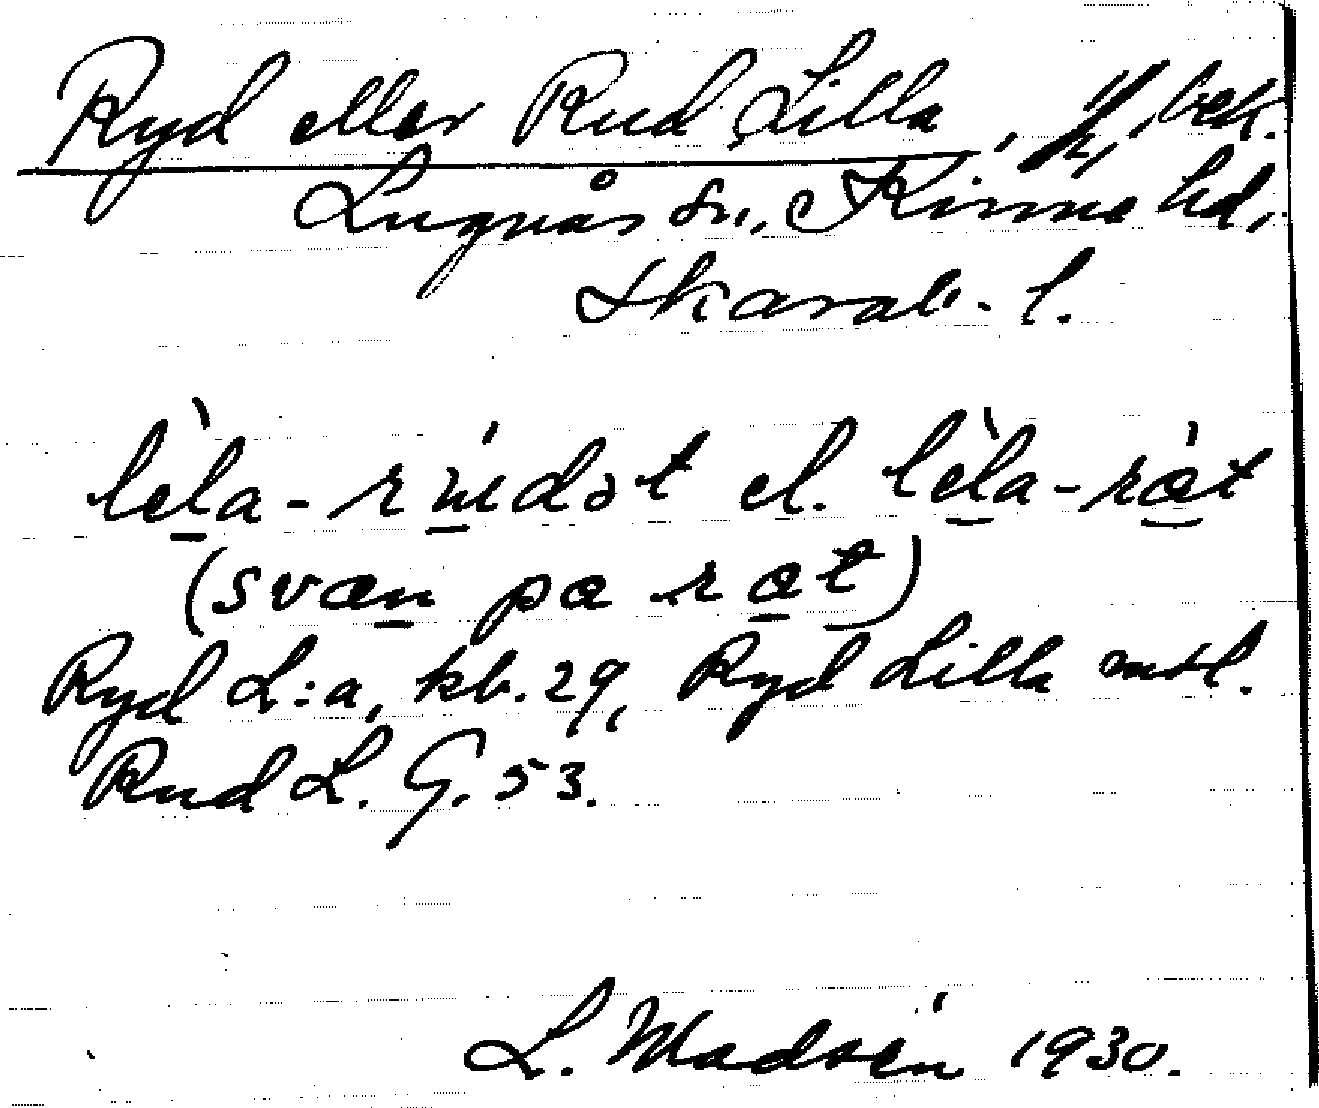 Ryd eller Rud Lilla, 1/4, bek.
Lugnås sn, Kinne hd,
Skarab. l.
lèla-rúdət el. lèla-rə̀t
(svæn pa rət)
Ryd L:a, kb. 29, Ryd Lilla mtl.
Rud L. G. 53.
L. Madsén 1930.